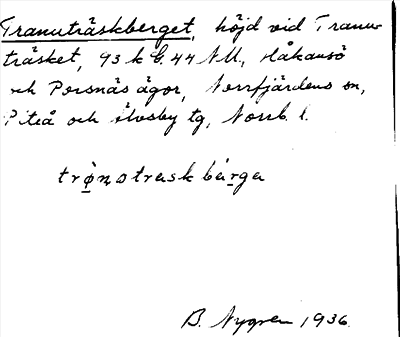 Tranuträskberget, höjd vid Tranu-
träsket, 93 k b. 44 NU, Håkansö
och Porsnäs ägor, Norrfjärdens sn,
Piteå och Älvsby tg, Norrb. l.
trø̱nɷtraskbär̠ga
B. Nygren 1936.